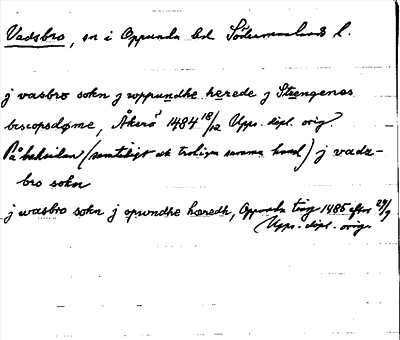 Vadsbro, sn i Oppunda hd Södermanlands l.
j vasbro sokn j woppundhe herede j Strengenes
biscopsdøme, Åkerö 1484 18/12 Upps. dipl. orig.
På baksidan (samtidigt och troligen samma hand) j vadz-
bro sokn
j wasbro sokn j opwndhe hæredh, Oppunda ting 1485 efter 29/9
Upps. dipl. orig.